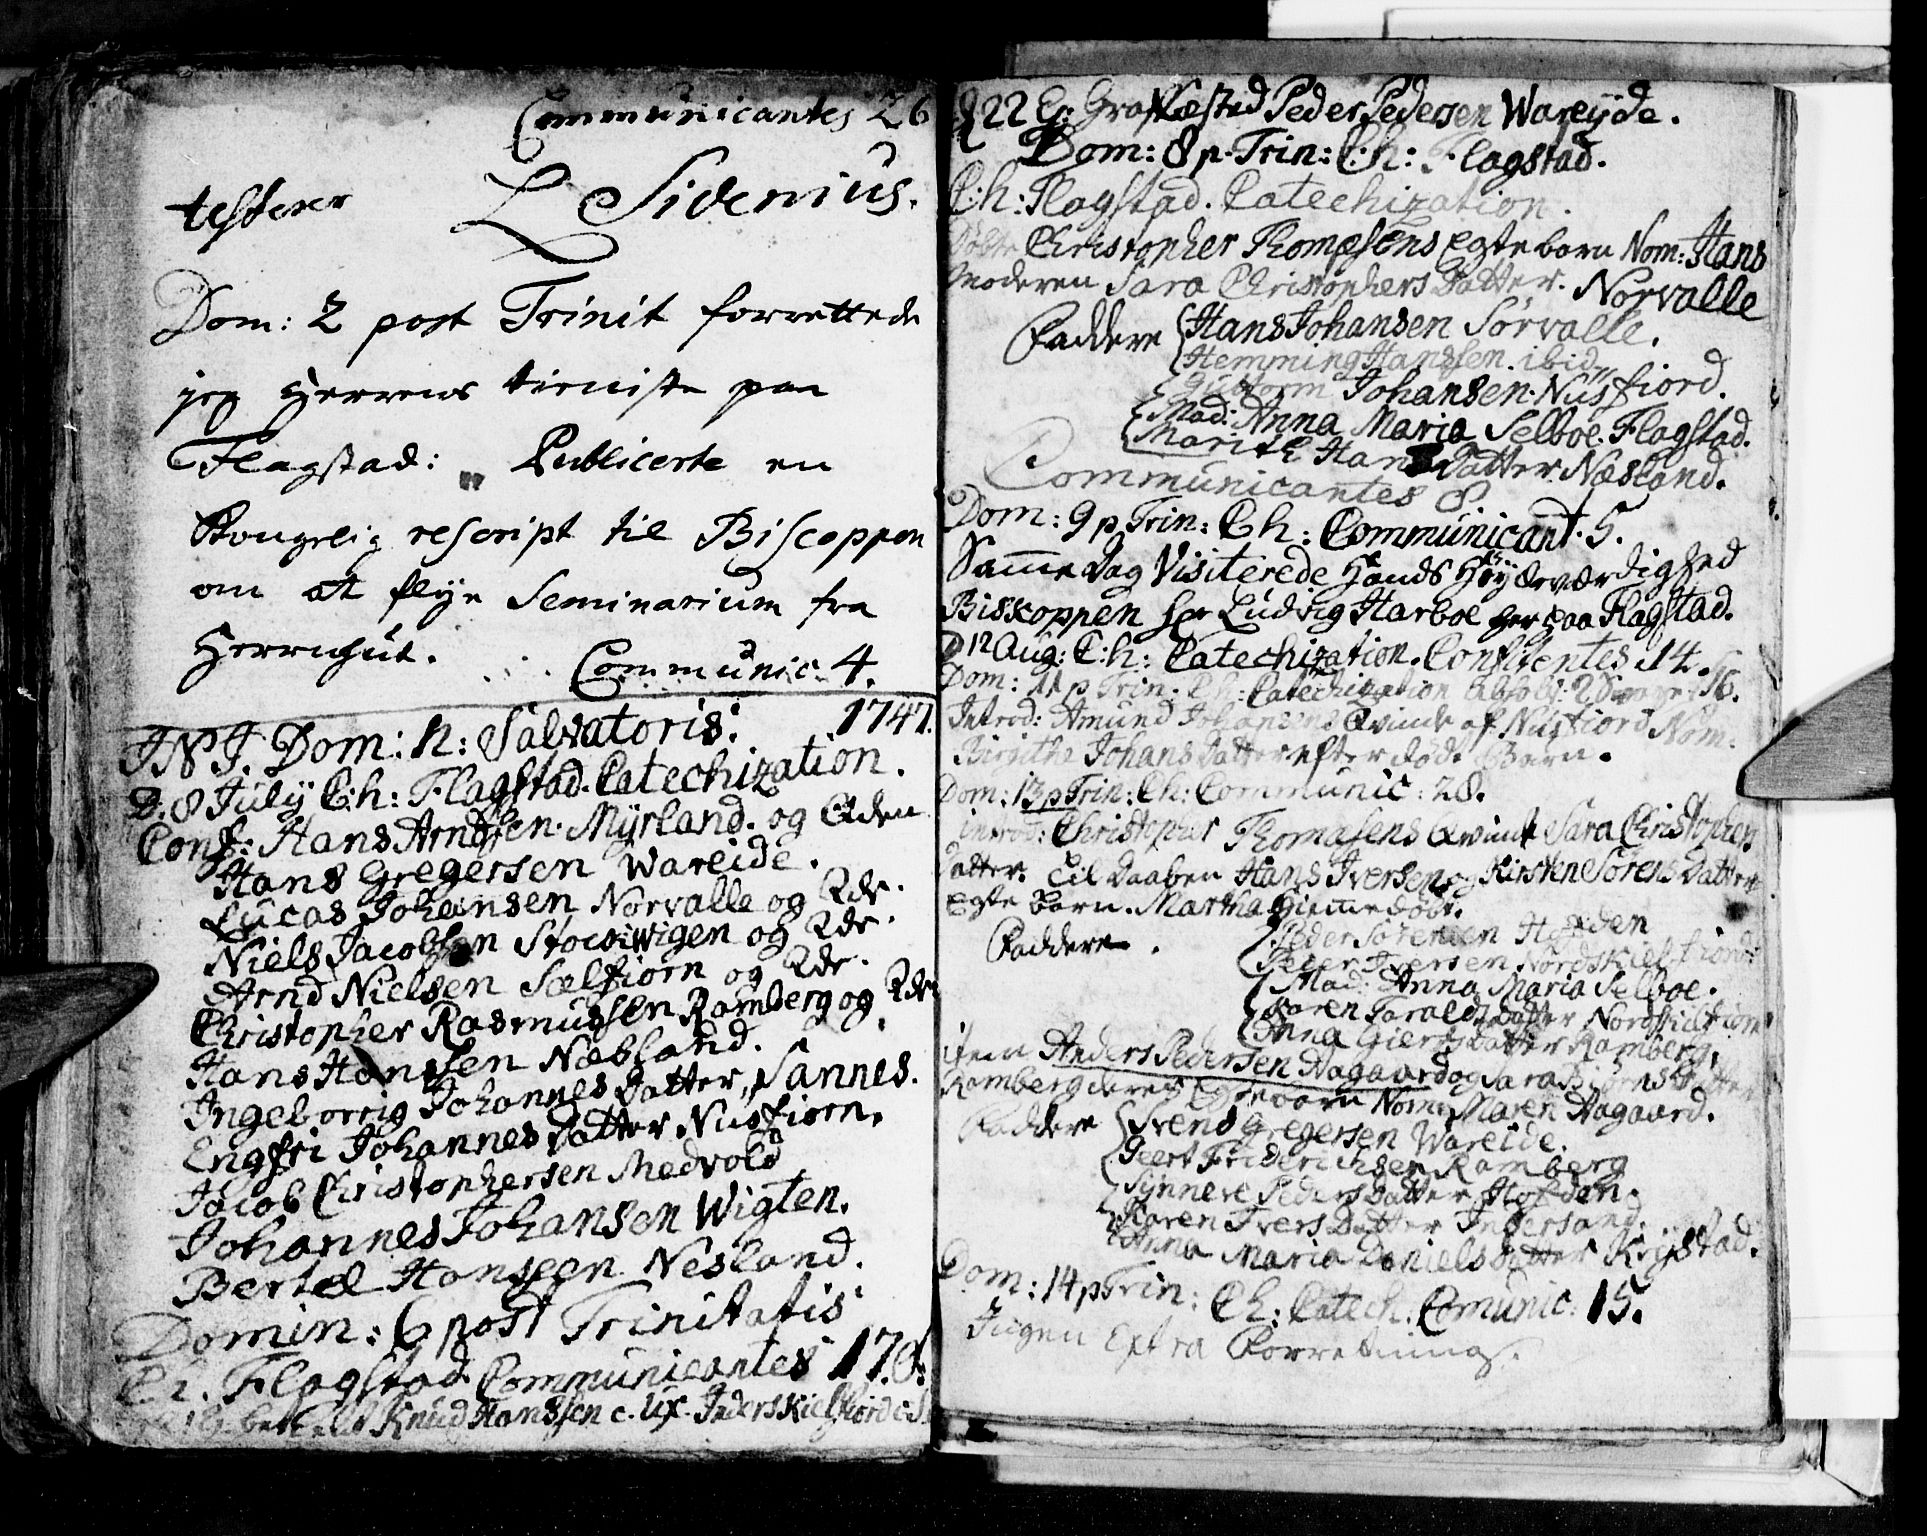 Communicantes 26
testerer L Sidenius.
Dom: 2 post Trinit forrettede
jeg Herrens tieniste paa
Flagstad: Publicerte en
Kongelig rescript til Biscoppen
om at flye Seminarium fra
Herrnhut.
Communic. 4.
J N J. Dom: N: Salvatoris: 1747.
D: 8 July C:h: Flagstad. Catechization.
Conf: Hans Arndsen. Myrland. og
Hans Gregersen Wareide.
Lucas Johansen Norvalle og Qde.
Niels Jacobsen Stocswigen og Qde.
Arnd Nielsen Selfiorn og Qde.
Christopher Rasmussen Ramberg og Qde
Hans Hanssen Nesland.
Ingeborrig Johannes Datter, Sannes.
Engfri Johannes Datter Nusfiorn.
Jacob Christophersen Medvold
Johannes Johansen Wigten.
Bertel Hanssen Nesland.
Domin: 6 post Trinitatis
Flagstad Communicantes 17.
Knud Hanssen c. ux. Inderskielfiord
22 Graffæsted Peder Pedersen Wareyde.
Dom: 8 p. Trin: C:h: Flagstad.
C:h: Flagstad. Catechization.
Døbte Christopher Thomesens Egte barn Nom: Hans
Moderen Sara Christophers Datter. Norvalle
Faddere Hans Johansen Sørvalle.
Hemming Hanssen. ibid
Guttorm Johansen. Nusfiord.
Mad: Anna Maria Selboe. Flagstad.
Marith Hans Datter. Nesland.
Communicantes 8
Dom: 9 p. Trin: C:h: Communicant. 5.
Samme Dag Visiterede Hands Høyærværdighed
Biskoppen Hr Ludvig Harboe her paa Flagstad.
D 12 Aug: C:h: Catechization. Confitentes 14.
Dom: 11 p Trin: C:h: Catechization 16.
Introd: Amund Johansens Qvinde af Nusfiord Nom.
Birgithe Johans Datter efter død Barn.
Dom: 13 p Trin: C:h: Communic: 28.
introd: Christopher Thomasens Qvinde Sara Christophers
Datter. Til Daaben Hans Iversens og Kirsten Sørens Datters
Egte Barn. Martha Hiemmedøbt.
Faddere. Peder Sørensen Hofden
Peder Iversen Nordskielfiord:
Mad: Anna Maria Selboe.
Karen Taralds Datter Nordskielfiord
Anna Gierts Datter Ramberg.
item Anders Pedersen Aagaard og Sara Biørns Datter
Ramberg deres Egte barn Nom: Maren Aagaard.
Faddere Svend Gregersen Wareide.
Geert Friderichsen Ramberg
Synnere Peders Datter Hofden.
Karen Ivers Datter Indersand
Anna Maria Daniels Datter Krystad.
Dom: 14 p Trin: C:h: Catech: Comunic: 15.
Ingen Extra Forretning.